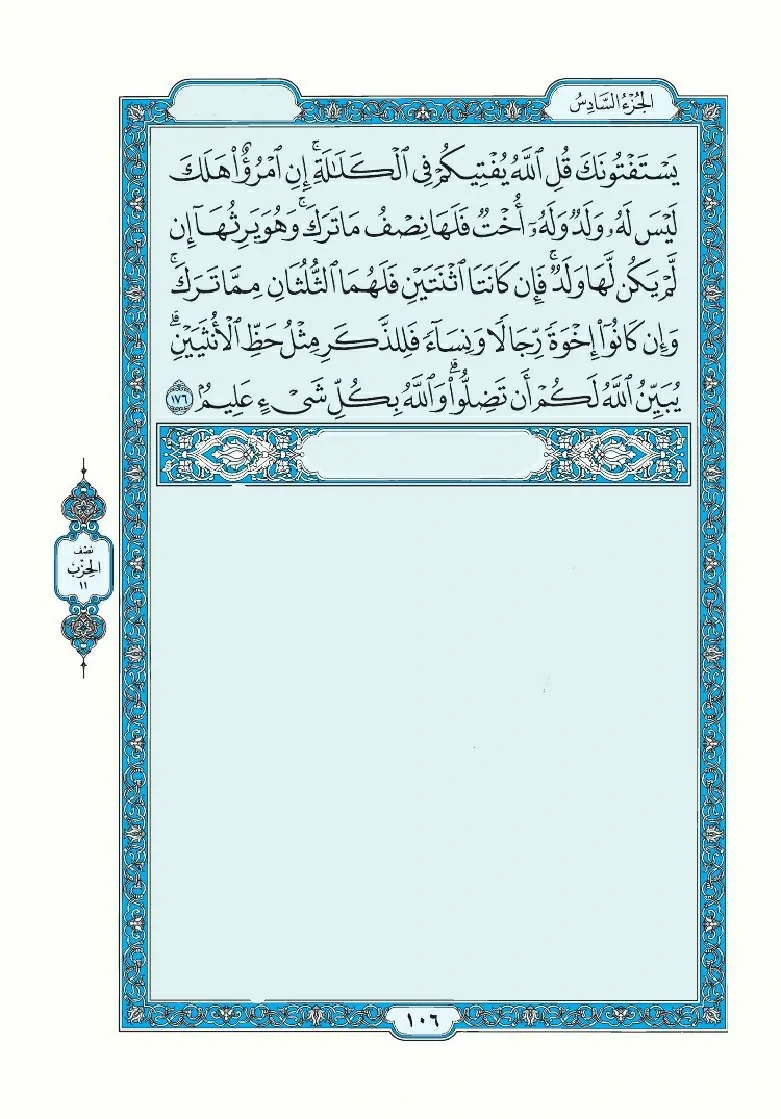 الجُزْءُ السَّادِسُ
يَسْتَفْتُونَكَ قُلِ ٱللَّهُ يُفْتِيكُمْ فِى ٱلْكَلَٰلَةِۚ إِنِ ٱمْرُؤٌا۟ هَلَكَ
لَيْسَ لَهُۥ وَلَدٌ وَلَهُۥٓ أُخْتٌ فَلَهَا نِصْفُ مَا تَرَكَۚ وَهُوَ يَرِثُهَآ إِن
لَّمْ يَكُن لَّهَا وَلَدٌۚ فَإِن كَانَتَا ٱثْنَتَيْنِ فَلَهُمَا ٱلثُّلُثَانِ مِمَّا تَرَكَۚ
وَإِن كَانُوٓا۟ إِخْوَةً رِّجَالًا وَنِسَآءً فَلِلذَّكَرِ مِثْلُ حَظِّ ٱلْأُنثَيَيْنِۗ
يُبَيِّنُ ٱللَّهُ لَكُمْ أَن تَضِلُّوا۟ۗ وَٱللَّهُ بِكُلِّ شَىْءٍ عَلِيمٌۢ ١٧٦
نصف
الحزب
١١
١٠٦